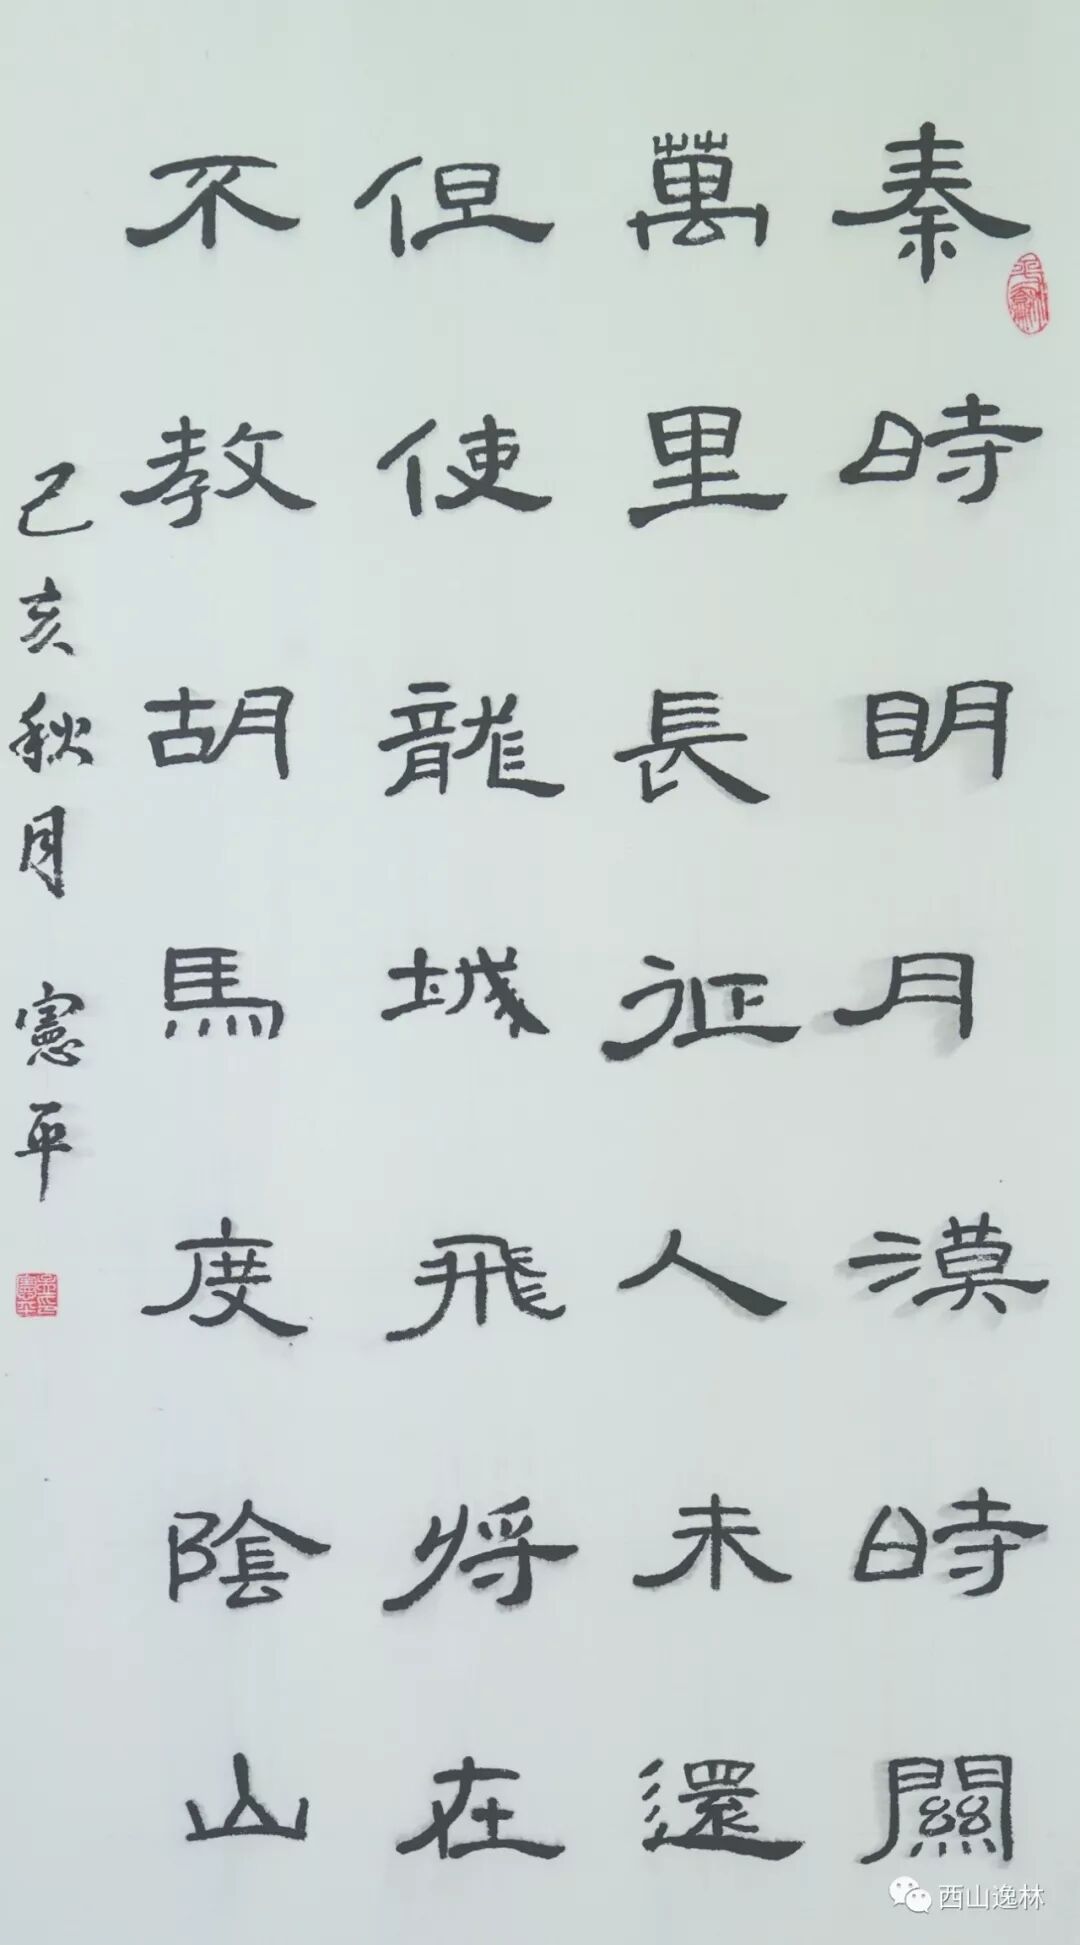 秦時明月漠時關
萬里長征人未還
但使龍城飛將在
不教胡馬度陰山
己亥秋月 憲平
西山逸林